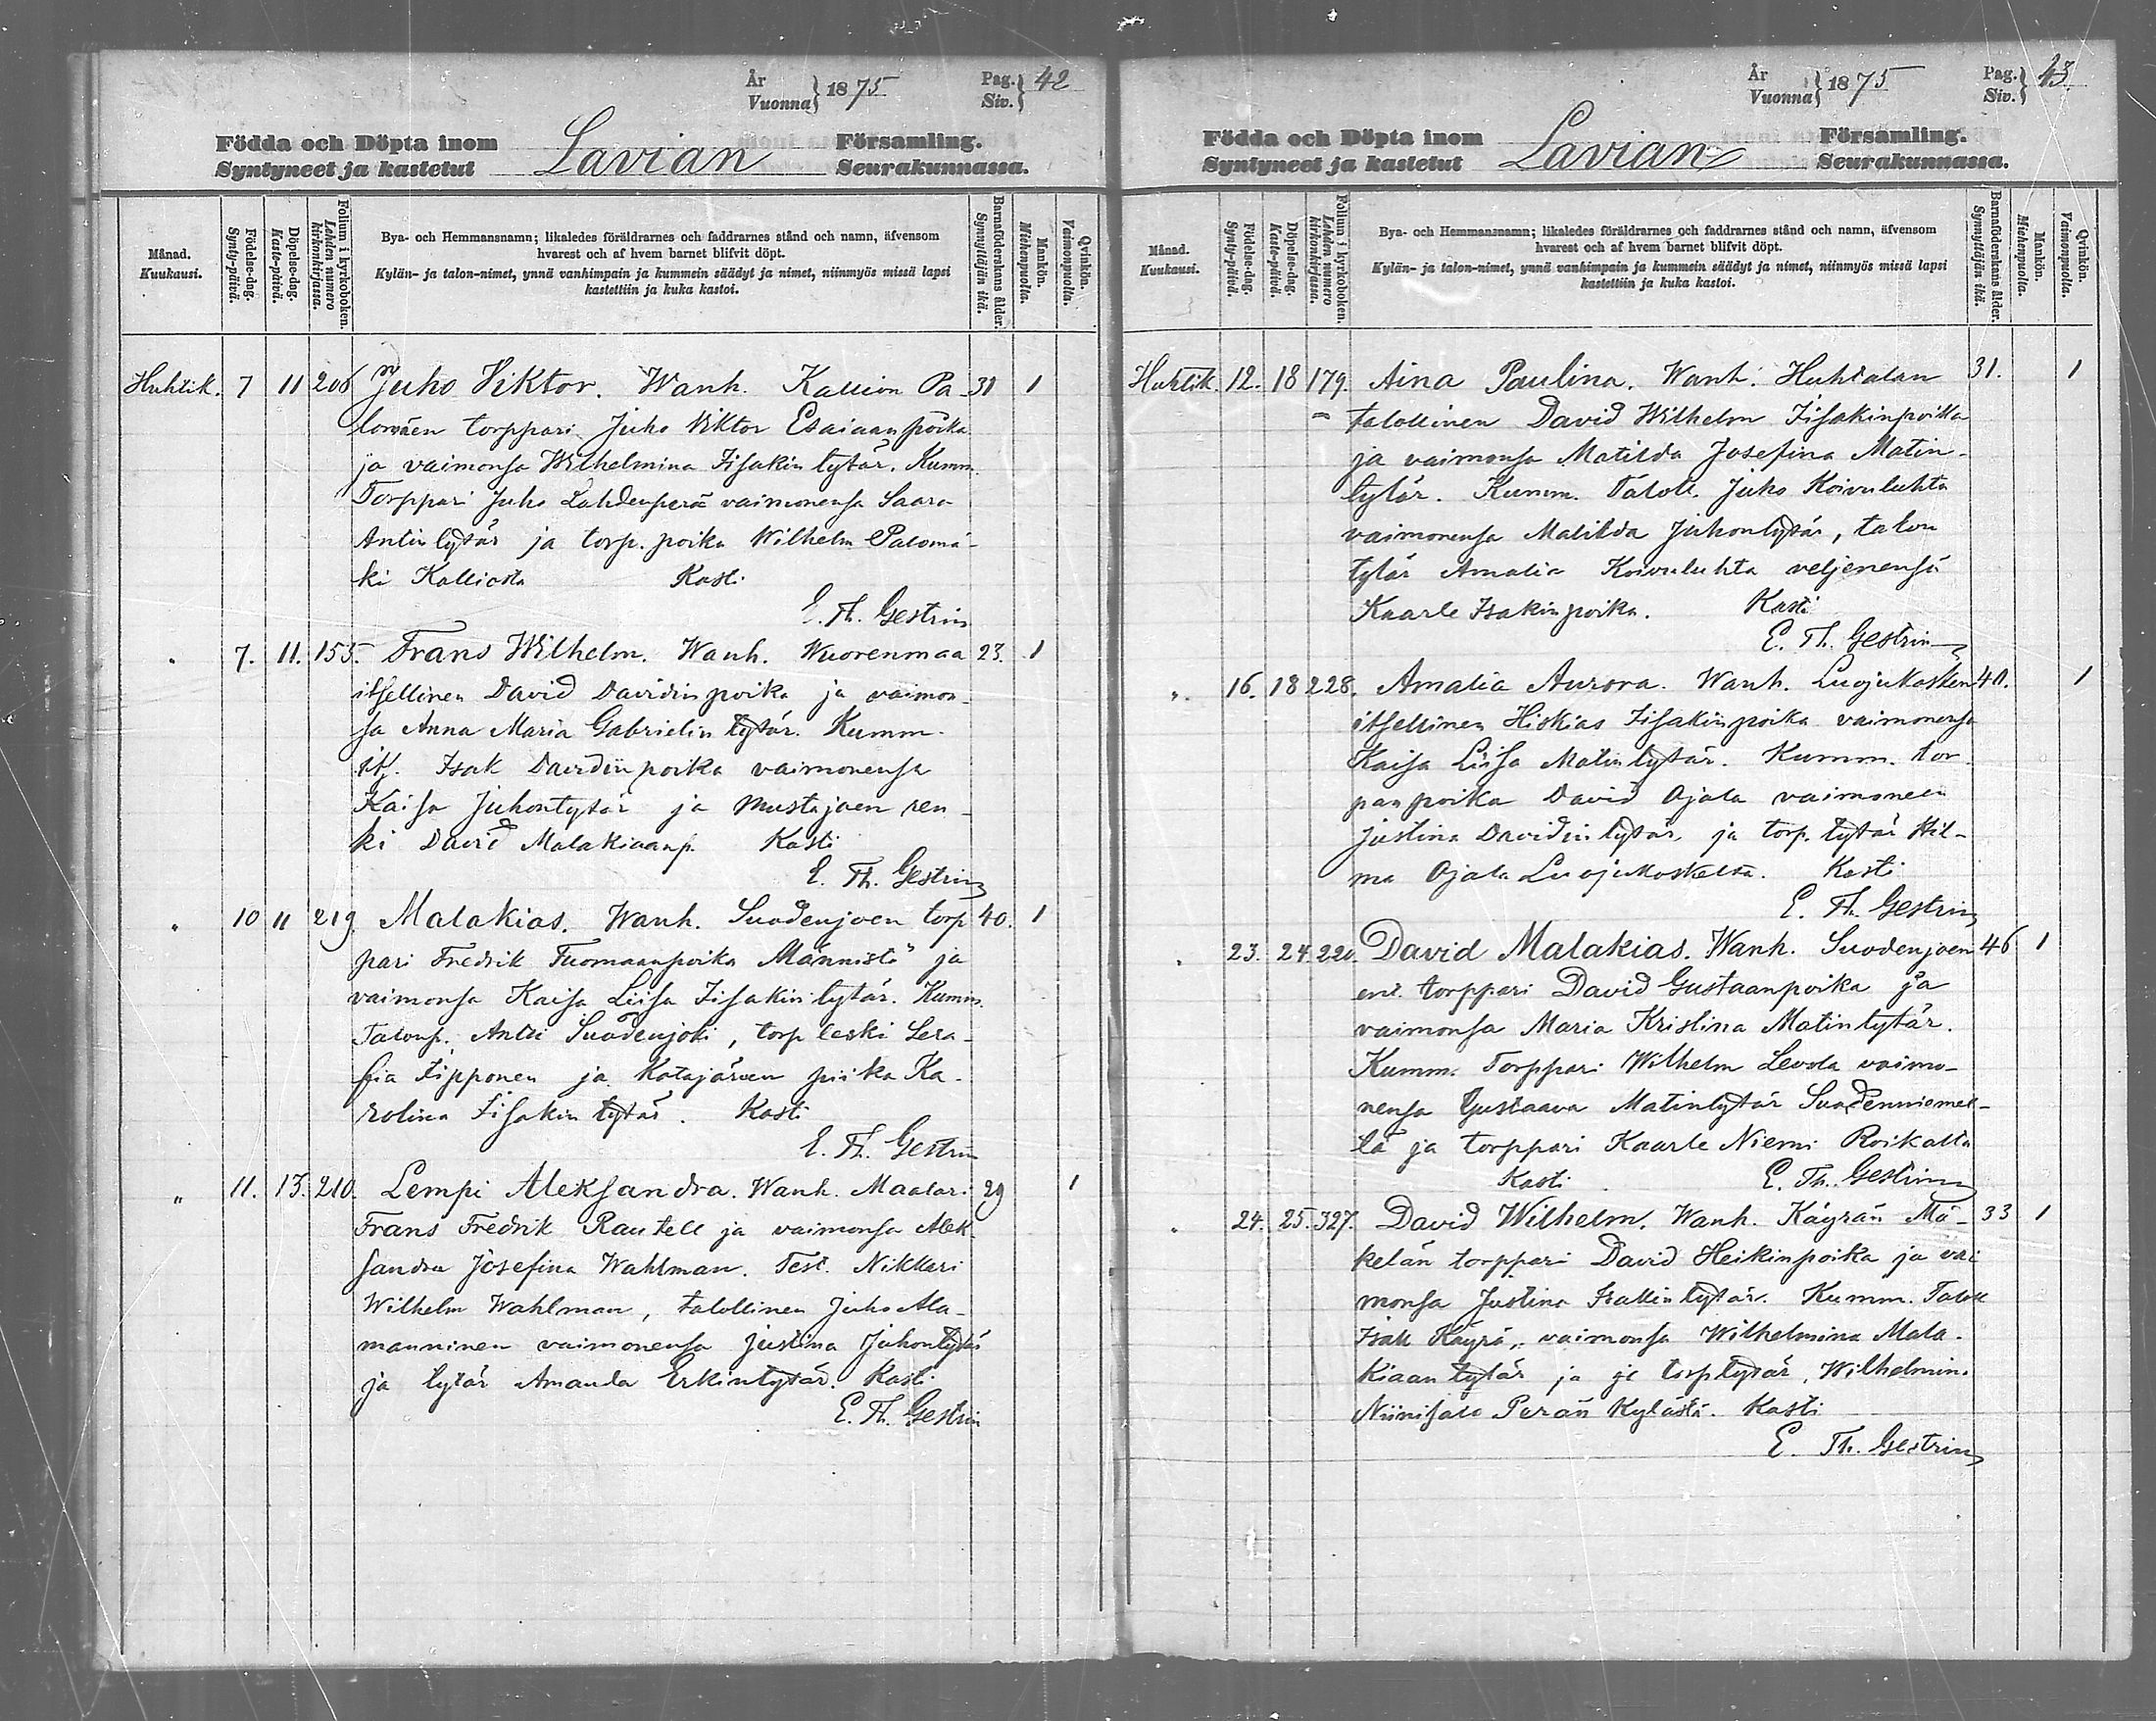 År Vuonna } 1875 Pag. Siv. } 42
Födda och Döpta inom Lavian Församling.
Syntyneet ja kastetut Seurakunnassa.
Månad. Kuukausi.
Födelse-dag. Synty-päivä.
Döpelse-dag. Kaste-päivä.
Folium i kyrkoboken. Lehden numero kirkonkirjassa.
Bya- och Hemmansnamn; likaledes föräldrarnes och faddrarnes stånd och namn, äfvensom
hvarest och af hvem barnet blifvit döpt.
Kylän- ja talon-nimet, ynnä vanhimpain ja kummein säädyt ja nimet, niinmyös missä lapsi
kastettiin ja kuka kastoi.
Barnaföderskans ålder. Synnyttäjän ikä.
Mankön. Miehenpuolia.
Qvinkön. Vaimonpuolia.
Huhtik. 7 11 206 Juho Viktor. Wanh. Kallion Pa- 31 1
lomäen torppari Juho Viktor Esaiaanpoika
ja vaimonsa Wilhelmina Iisakin tytär. Kumm.
Torppari Juho Lahdenperä vaimonensa Saara
Antintytär ja torp. poika Wilhelm Palomä-
ki Kalliosta Kasti
E. Th. Gestrin
" 7. 11. 153. Frans Wilhelm. Wanh. Wuorenmaa 23. 1
itsellinen David Davidinpoika ja vaimon-
sa Anna Maria Gabrielin tytär. Kumm.
its. Isak Davidinpoika vaimonensa
Kaisa Juhontytär ja Mustajoen ren-
ki David Malakiaanp. Kasti
E. Th. Gestrin
" 10 11 219. Malakias. Wanh. Suodenjoen torp 40. 1
pari Fredrik Tuomaanpoika Männistö ja
vaimonsa Kaisa Liisa Iisakin tytär. Kumm.
Talonp. Antti Suodenjoki, torp leski Sera-
fia Tipponen ja Katajärven piika Ka-
rolina Iisakin tytär. Kasti
E. Th. Gestrin
" 11. 13. 210. Lempi Aleksandra. Wanh. Maalari 29 1
Frans Fredrik Rautell ja vaimonsa Alek
sandra Josefina Wahlman. Test. Nikkari
Wilhelm Wahlman, talollinen Juho Ala-
manninen vaimonensa Justina Juhontytär
ja tytär Amanda Erkintytär. Kasti
E. Th. Gestrin
År Vuonna } 1875 Pag. Siv. } 43
Födda och Döpta inom Lavian Församling.
Syntyneet ja kastetut Seurakunnassa.
Månad. Kuukausi.
Födelse-dag. Synty-päivä.
Döpelse-dag. Kaste-päivä.
Folium i kyrkoboken. Lehden numero kirkonkirjassa.
Bya- och Hemmansnamn; likaledes föräldrarnes och faddrarnes stånd och namn, äfvensom
hvarest och af hvem barnet blifvit döpt.
Kylän- ja talon-nimet, ynnä vanhimpain ja kummein säädyt ja nimet, niinmyös missä lapsi
kastettiin ja kuka kastoi.
Barnaföderskans ålder. Synnyttäjän ikä.
Mankön. Miehenpuolia.
Qvinkön. Vaimonpuolia.
Huhtik. 12. 18 179. Aina Paulina. Wanh. Huhtalan 31. 1
talollinen David Wilhelm Iisakinpoika
ja vaimonsa Matilda Josefina Matin-
tytär. Kumm. Taloll. Juho Koivuluhta
vaimonensa Matilda Juhontytär, talon
tytär Amalia Koivuluhta veljenensä
Kaarle Isakinpoika. Kasti
E. Th. Gestrin
". 16. 18 228. Amalia Aurora. Wanh. Luojukosken 40. 1
itsellinen Hiskias Iisakinpoika vaimonensa
Kaisa Liisa Matin tytär. Kumm. tor
panpoika David Ojala vaimoneen
Justina Davidin tytär, ja torp. tytär Hil-
ma Ojala Luojukoskelta. Kasti
E. Th. Gestrin
" 23. 24. 220. David Malakias. Wanh. Suodenjoen 46 1
ent. torppari David Gustaanpoika ja
vaimonsa Maria Kristina Matintytär.
Kumm. Torppari Wilhelm Levola vaimo-
nensa Gustaava Matintytär Suodenniemel-
tä ja torppari Kaarle Niemi Roikalta
Kasti E. Th. Gestrin
" 24. 25. 327. David Wilhelm. Wanh. Käyrän Mä- 33 1
kelän torppari David Heikinpoika ja vai
monsa Justina Isakin tytär. Kumm. Taloll
Isak Käyrä, vaimonsa Wilhelmina Mala-
kiaan tytär ja torp tytär, Wilhelmin.
Niinisalo Perän kylästä. Kasti
E. Th. Gestrin